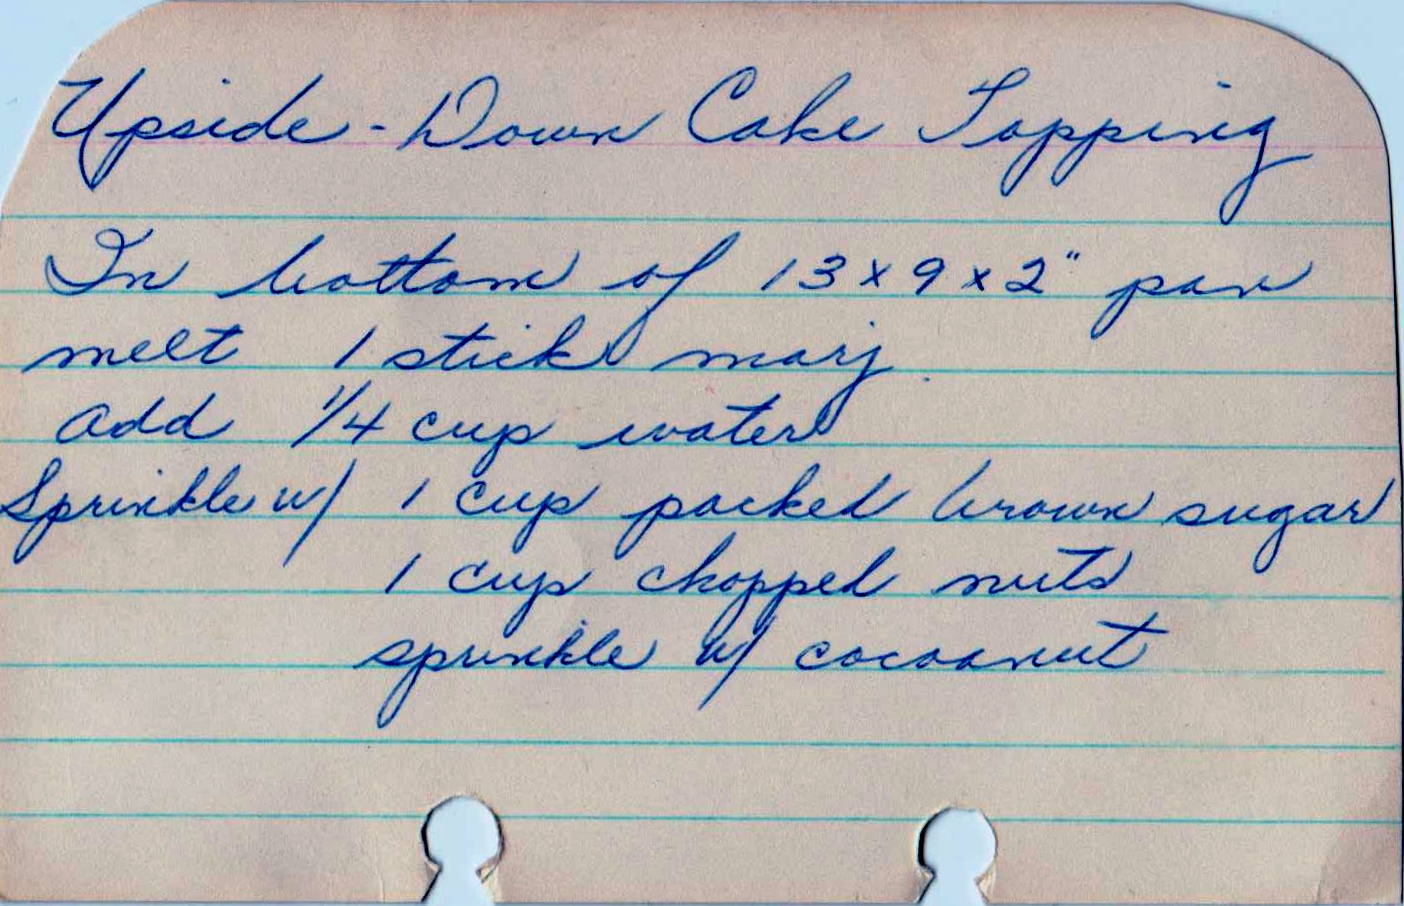 Upside-Down Cake Topping
In bottom of 13x9x2" pan
melt 1 stick marj.
add 1/4 cup water
Sprinkle w/ 1 cup packed brown sugar
1 cup chopped nuts
sprinkle w/ cocoanut